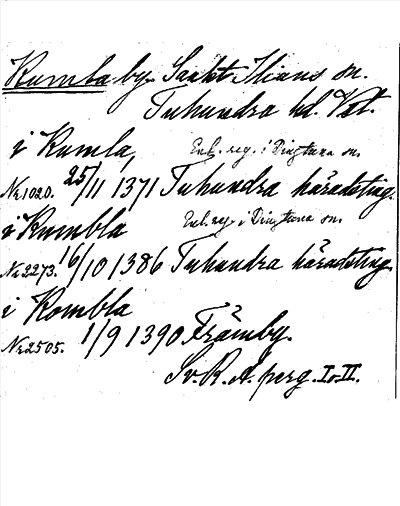 Rumla by. Sankt Ilians sn.
Tuhundra hd. Vstl.
i Rumla, Enl. reg. i Dingtuna sn.
No 1020. 25/11 1371 Tuhundra häradsting.
i Rumbla Enl. reg. i Dingtuna sn.
No 2273. 16/10 1386 Tuhundra häradsting.
i Rombla
No 2505. 1/9 1390 Främby.
Sv. R. A. perg. I o. II.